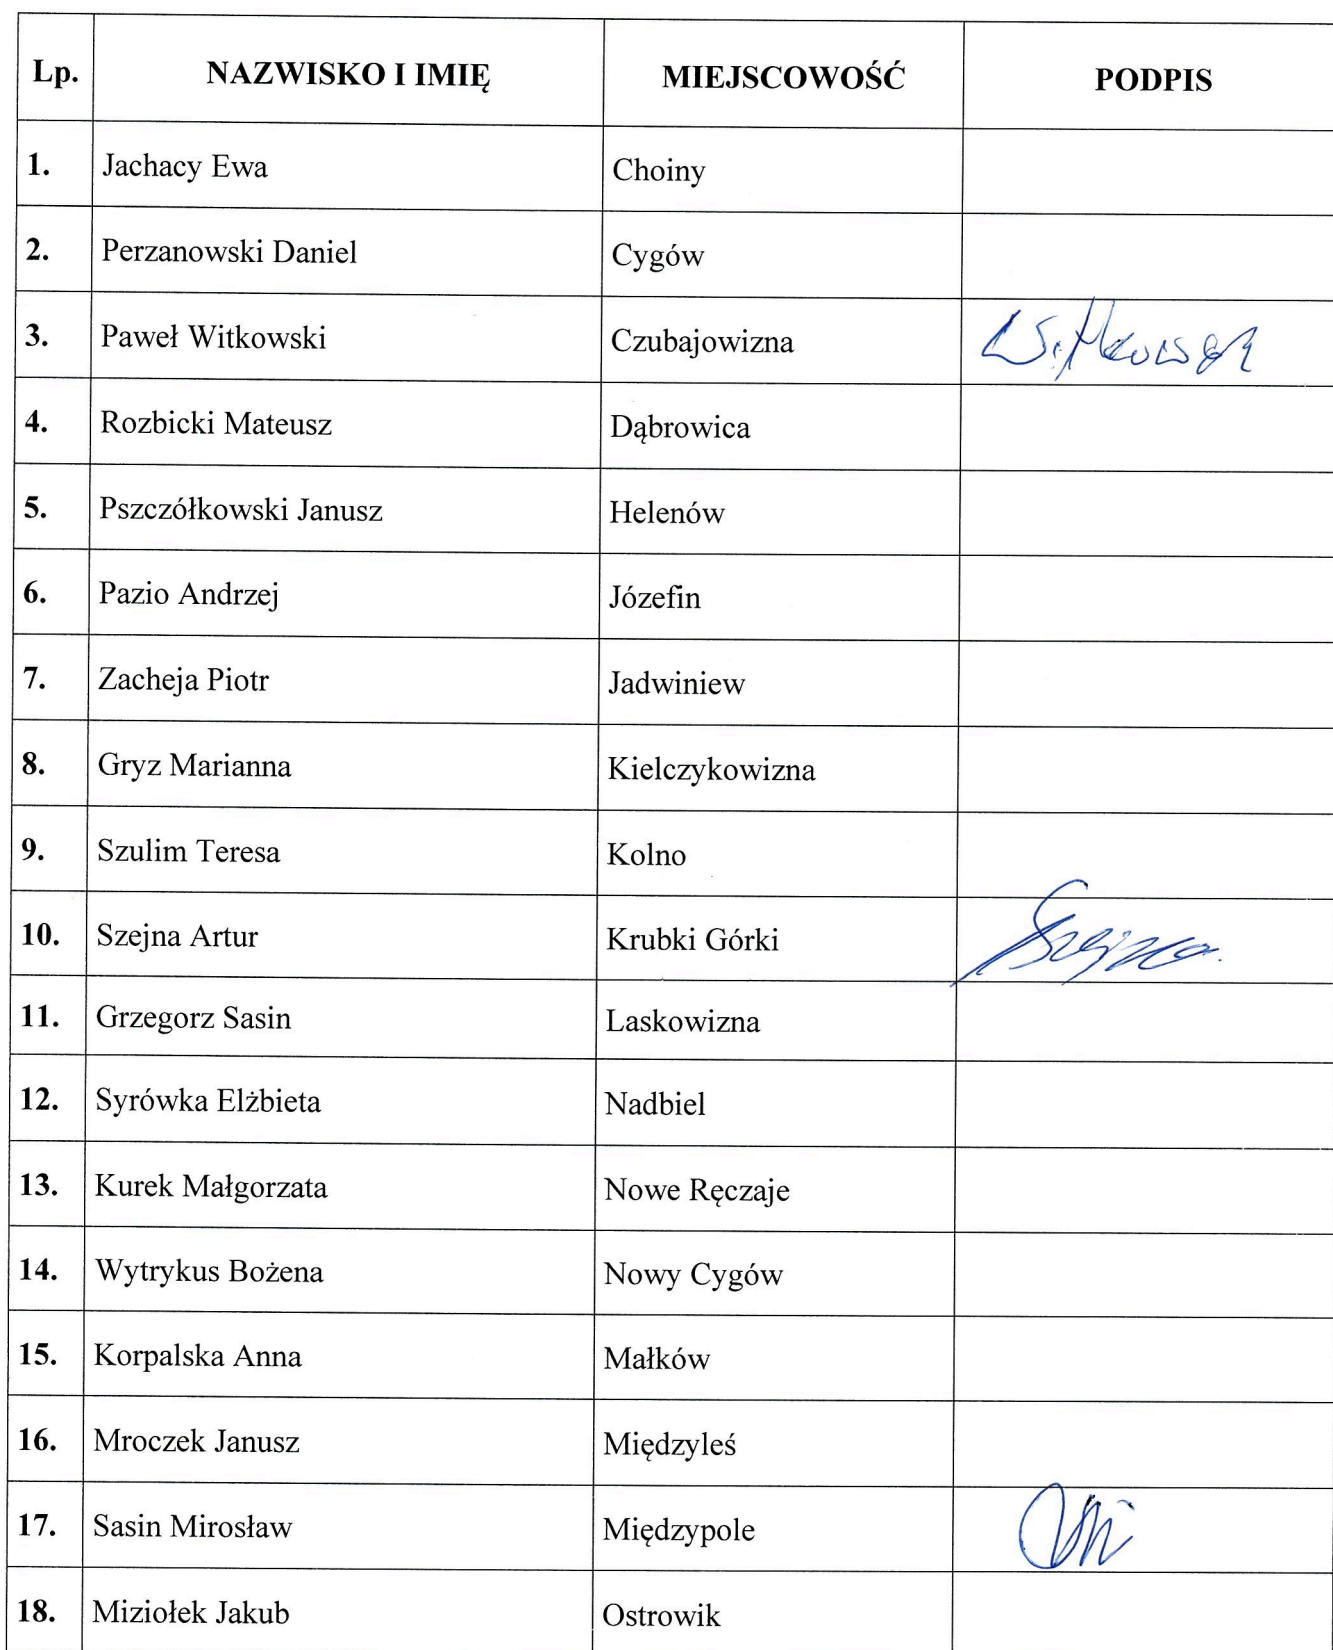 Lp. NAZWISKO I IMIĘ MIEJSCOWOŚĆ PODPIS
1. Jachacy Ewa Choiny
2. Perzanowski Daniel Cygów
3. Paweł Witkowski Czubajowizna Witkowski
4. Rozbicki Mateusz Dąbrowica
5. Pszczółkowski Janusz Helenów
6. Pazio Andrzej Józefin
7. Zacheja Piotr Jadwiniew
8. Gryz Marianna Kielczykowizna
9. Szulim Teresa Kolno
10. Szejna Artur Krubki Górki Szejna
11. Grzegorz Sasin Laskowizna
12. Syrówka Elżbieta Nadbiel
13. Kurek Małgorzata Nowe Ręczaje
14. Wytrykus Bożena Nowy Cygów
15. Korpalska Anna Małków
16. Mroczek Janusz Międzyleś
17. Sasin Mirosław Międzypole
18. Miziołek Jakub Ostrowik